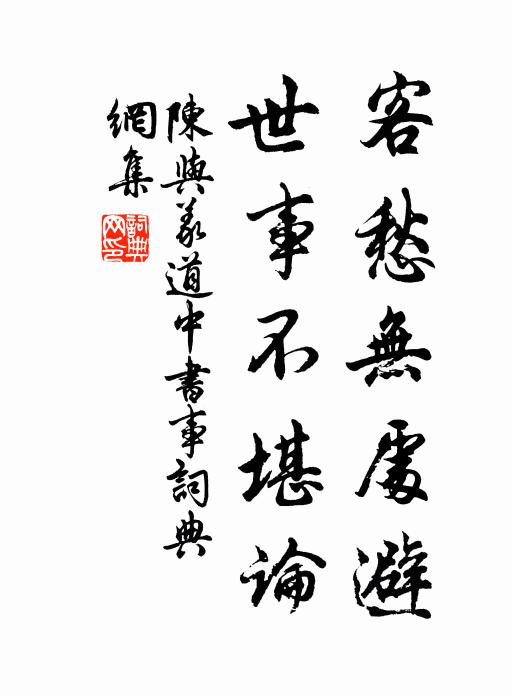 客愁無處避
世事不堪論
陳與義道中書事詞典
網集
詞典網印